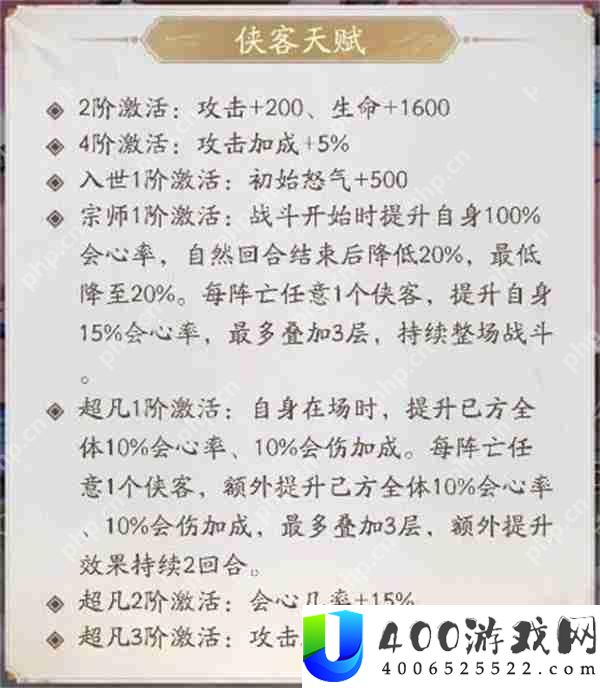 侠客天赋
2阶激活：攻击+200、生命+1600
4阶激活：攻击加成+5%
入世1阶激活：初始怒气+500
宗师1阶激活：战斗开始时提升自身100%
会心率，自然回合结束后降低20%，最低
降至20%。每阵亡任意1个侠客，提升自身
15%会心率，最多叠加3层，持续整场战斗
。
超凡1阶激活：自身在场时，提升己方全
体10%会心率、10%会伤加成。每阵亡任
意1个侠客，额外提升己方全体10%会心率
、10%会伤加成，最多叠加3层，额外提升
效果持续2回合。
超凡2阶激活：会心几率+15%
超凡3阶激活：攻击
400游戏网
4006525522.com
php.cn